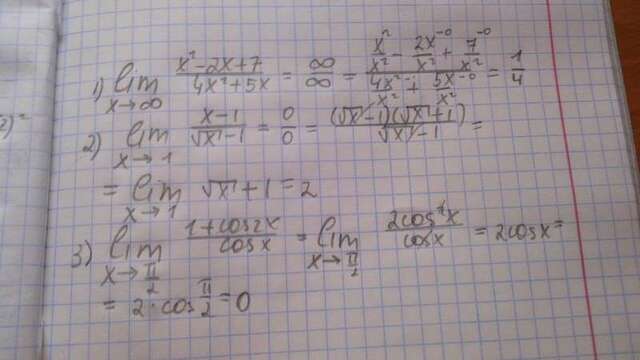 1) lim x→∞ (x²-2x+7)/(4x²+5x) = ∞/∞ = (x²/x² - 2x⁻⁰/x² + 7⁻⁰/x²)/(4x²/x² + 5x⁻⁰/x²) = 1/4
2) lim x→1 (x-1)/(√x-1) = 0/0 = (√x-1)(√x+1)/(√x-1) =
= lim x→1 √x+1 = 2
3) lim x→π/2 (1+cos2x)/(cosx) = lim x→π/2 (2cos²x)/(cosx) = 2cosx =
= 2·cos π/2 = 0